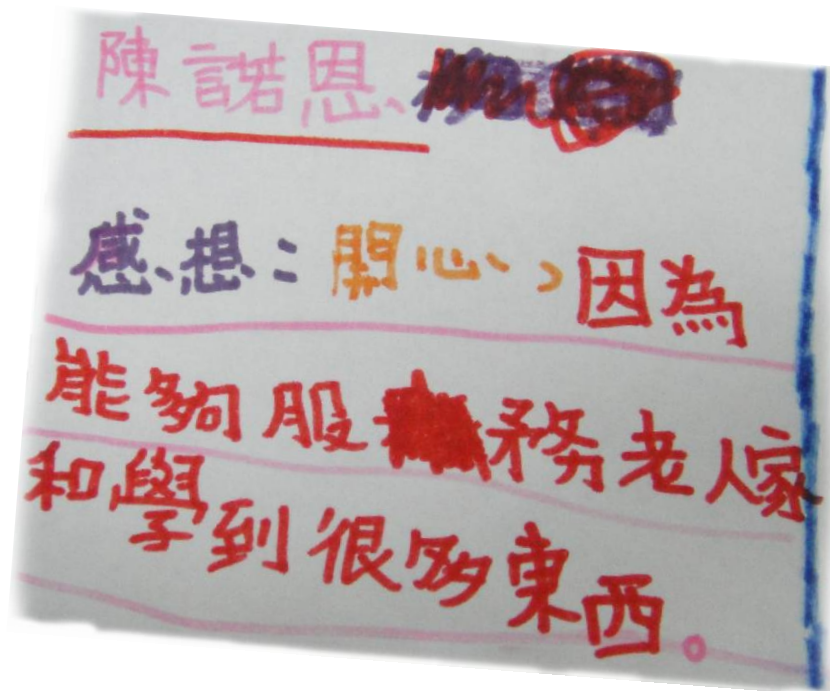 陳諾恩
感想：開心，因為
能夠服務老人家
和學到很多東西。